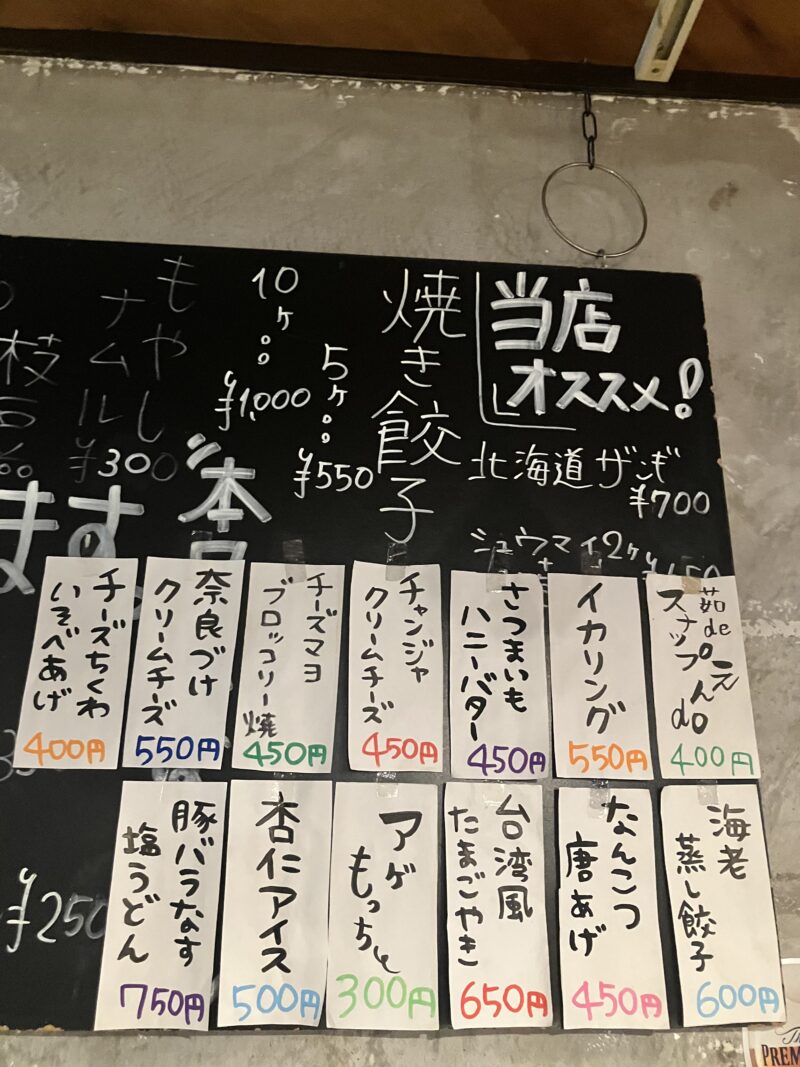 当店
オススメ!
北海道ザンギ
¥700
シュウマイ2ヶ
焼き餃子
5ヶ。。
¥550
10ヶ。。
¥1,000
もやし
ナムル
¥300
枝
ます。
本日
¥250
茹de
スナップえんdo
400円
イカリング
550円
さつまいも
ハニーバター
450円
チャンジャ
クリームチーズ
450円
チーズマヨ
ブロッコリー焼
450円
奈良づけ
クリームチーズ
550円
チーズちくわ
いそべあげ
400円
海老
蒸し餃子
600円
なんこつ
唐あげ
450円
台湾風
たまごやき
650円
アゲ
もっちぃ
300円
杏仁アイス
500円
豚バラなす
塩うどん
750円
PREM